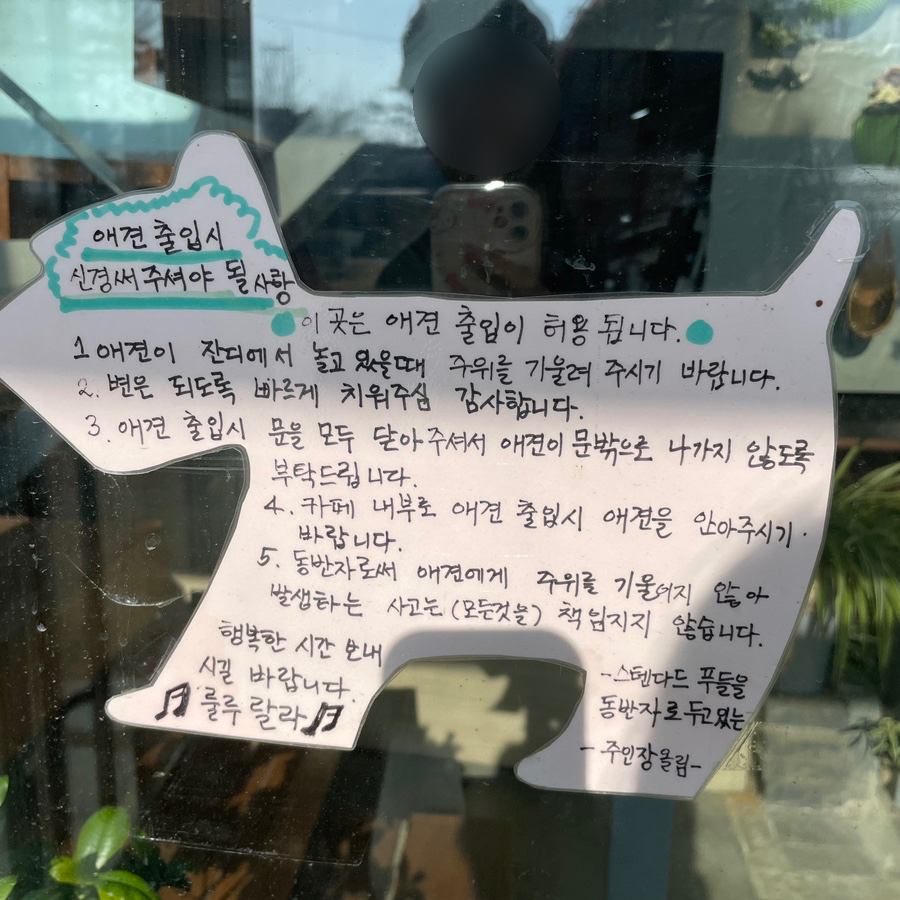 애견 출입시
신경써 주셔야 될 사항
이 곳은 애견 출입이 허용 됩니다.
1 애견이 잔디에서 놀고 있을때 주위를 기울려 주시기 바랍니다.
2. 변은 되도록 빠르게 치워주심 감사합니다.
3. 애견 출입시 문을 모두 닫아 주셔서 애견이 문밖으로 나가지 않도록
부탁드립니다.
4. 카페 내부로 애견 출입시 애견을 안아주시기
바랍니다.
5. 동반자로써 애견에게 주위를 기울이지 않아
발생하는 사고는 (모든것을) 책임지지 않습니다.
행복한 시간 보내
시길 바랍니다.
룰루 랄라
-스텐다드 푸들을
동반자로 두고있는
- 주인장 올림-